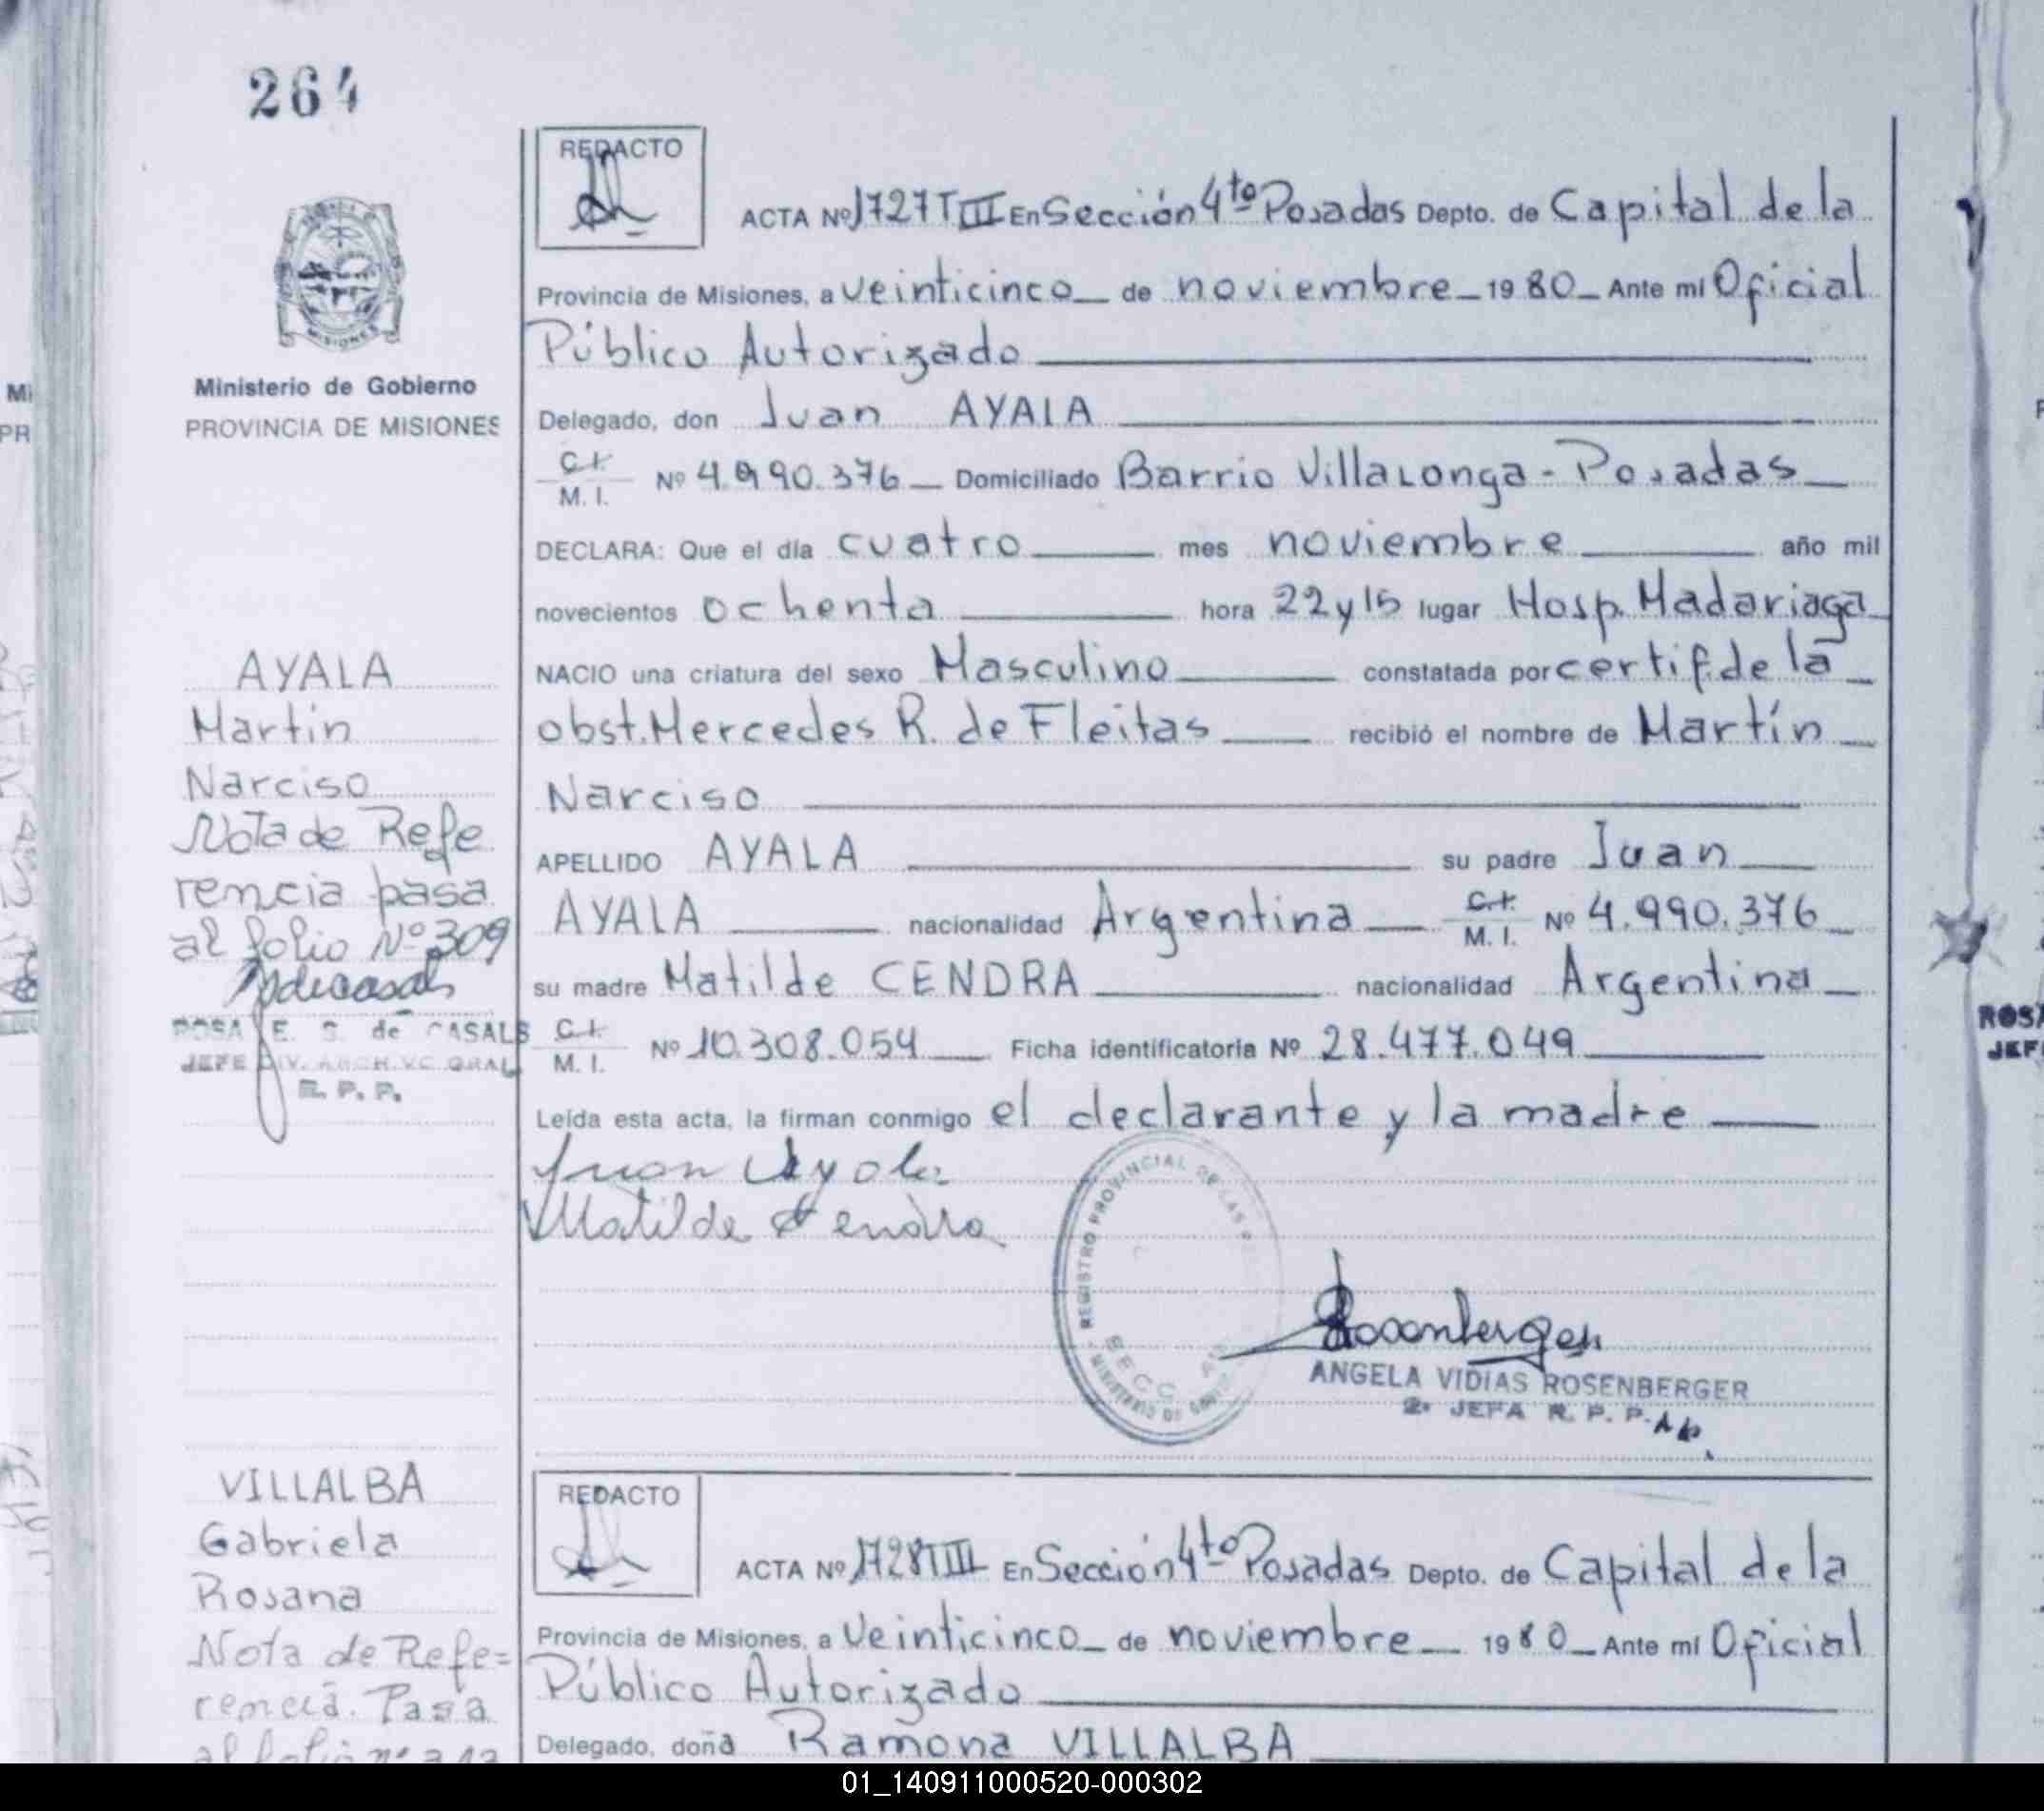 264
Ministerio de Gobierno
PROVINCIA DE MISIONES
AYALA
Martín
Narciso
Nota de Refe
rencia pasa
al folio Nº 309
ROSA E. S. de CASALS
JEFE DIV. ARCHIVO GRAL
R. P. P.
REDACTO
ACTA Nº 1727 T III En Sección 4to Posadas Depto. de Capital de la
Provincia de Misiones, a veinticinco de noviembre 1980 Ante mí Oficial
Público Autorizado
Delegado, don Juan AYALA
C.I.
M. I. Nº 4.990.376 Domiciliado Barrio Villalonga - Posadas
DECLARA: Que el día cuatro mes noviembre año mil
novecientos ochenta hora 22 y 15 lugar Hosp. Madariaga
NACIO una criatura del sexo Masculino constatada por certif. de la
obst. Mercedes R. de Fleitas recibió el nombre de Martín
Narciso
APELLIDO AYALA su padre Juan
AYALA nacionalidad Argentina C.I. M. I. Nº 4.990.376
su madre Matilde CENDRA nacionalidad Argentina
C.I.
M. I. Nº 10.308.054 Ficha identificatoria Nº 28.477.049
Leída esta acta, la firman conmigo el declarante y la madre
Juan Ayala
Matilde Cendra
REGISTRO PROVINCIAL DE LAS
Rosenberger
ANGELA VIDIAS ROSENBERGER
2º JEFA R. P. P.
VILLALBA
Gabriela
Rosana
Nota de Refe=
rencia. Pasa
al folio nº
REDACTO
ACTA Nº 1728 T III En Sección 4to Posadas Depto. de Capital de la
Provincia de Misiones, a veinticinco de noviembre 1980 Ante mí Oficial
Público Autorizado
Delegado, doña Ramona VILLALBA
ROSA
JEF
01_140911000520-000302